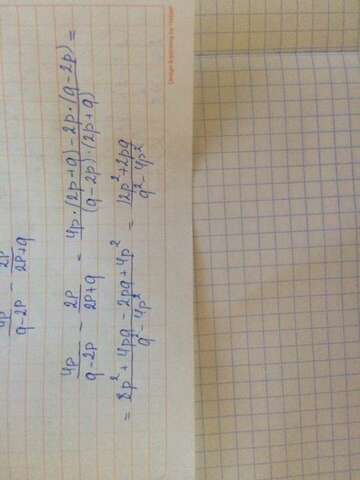 4p/(q-2p) - 2p/(2p+q)
4p/(q-2p) - 2p/(2p+q) = (4p·(2p+q)-2p·(q-2p))/((q-2p)·(2p+q)) =
= (8p²+4pq-2pq+4p²)/(q²-4p²) = (12p²+2pq)/(q²-4p²)